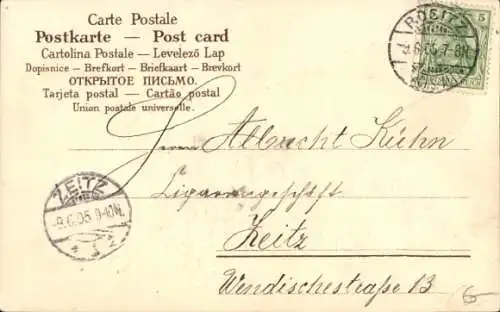 Carte Postale
Postkarte — Post card
Cartolina Postale — Levelező Lap
Dopisnice — Brefkort — Briefkaart — Brevkort
ОТКРЫТОЕ ПИСЬМО.
Tarjeta postal — Cartão postal
Union postale universelle.
ROSITZ
9.6.05. 7-8N.
5
Herrn Albrecht Kühn
Cigarrengeschäft
Zeitz
Wendischestraße 13
ZEITZ
-9.6.05. 9-10N.